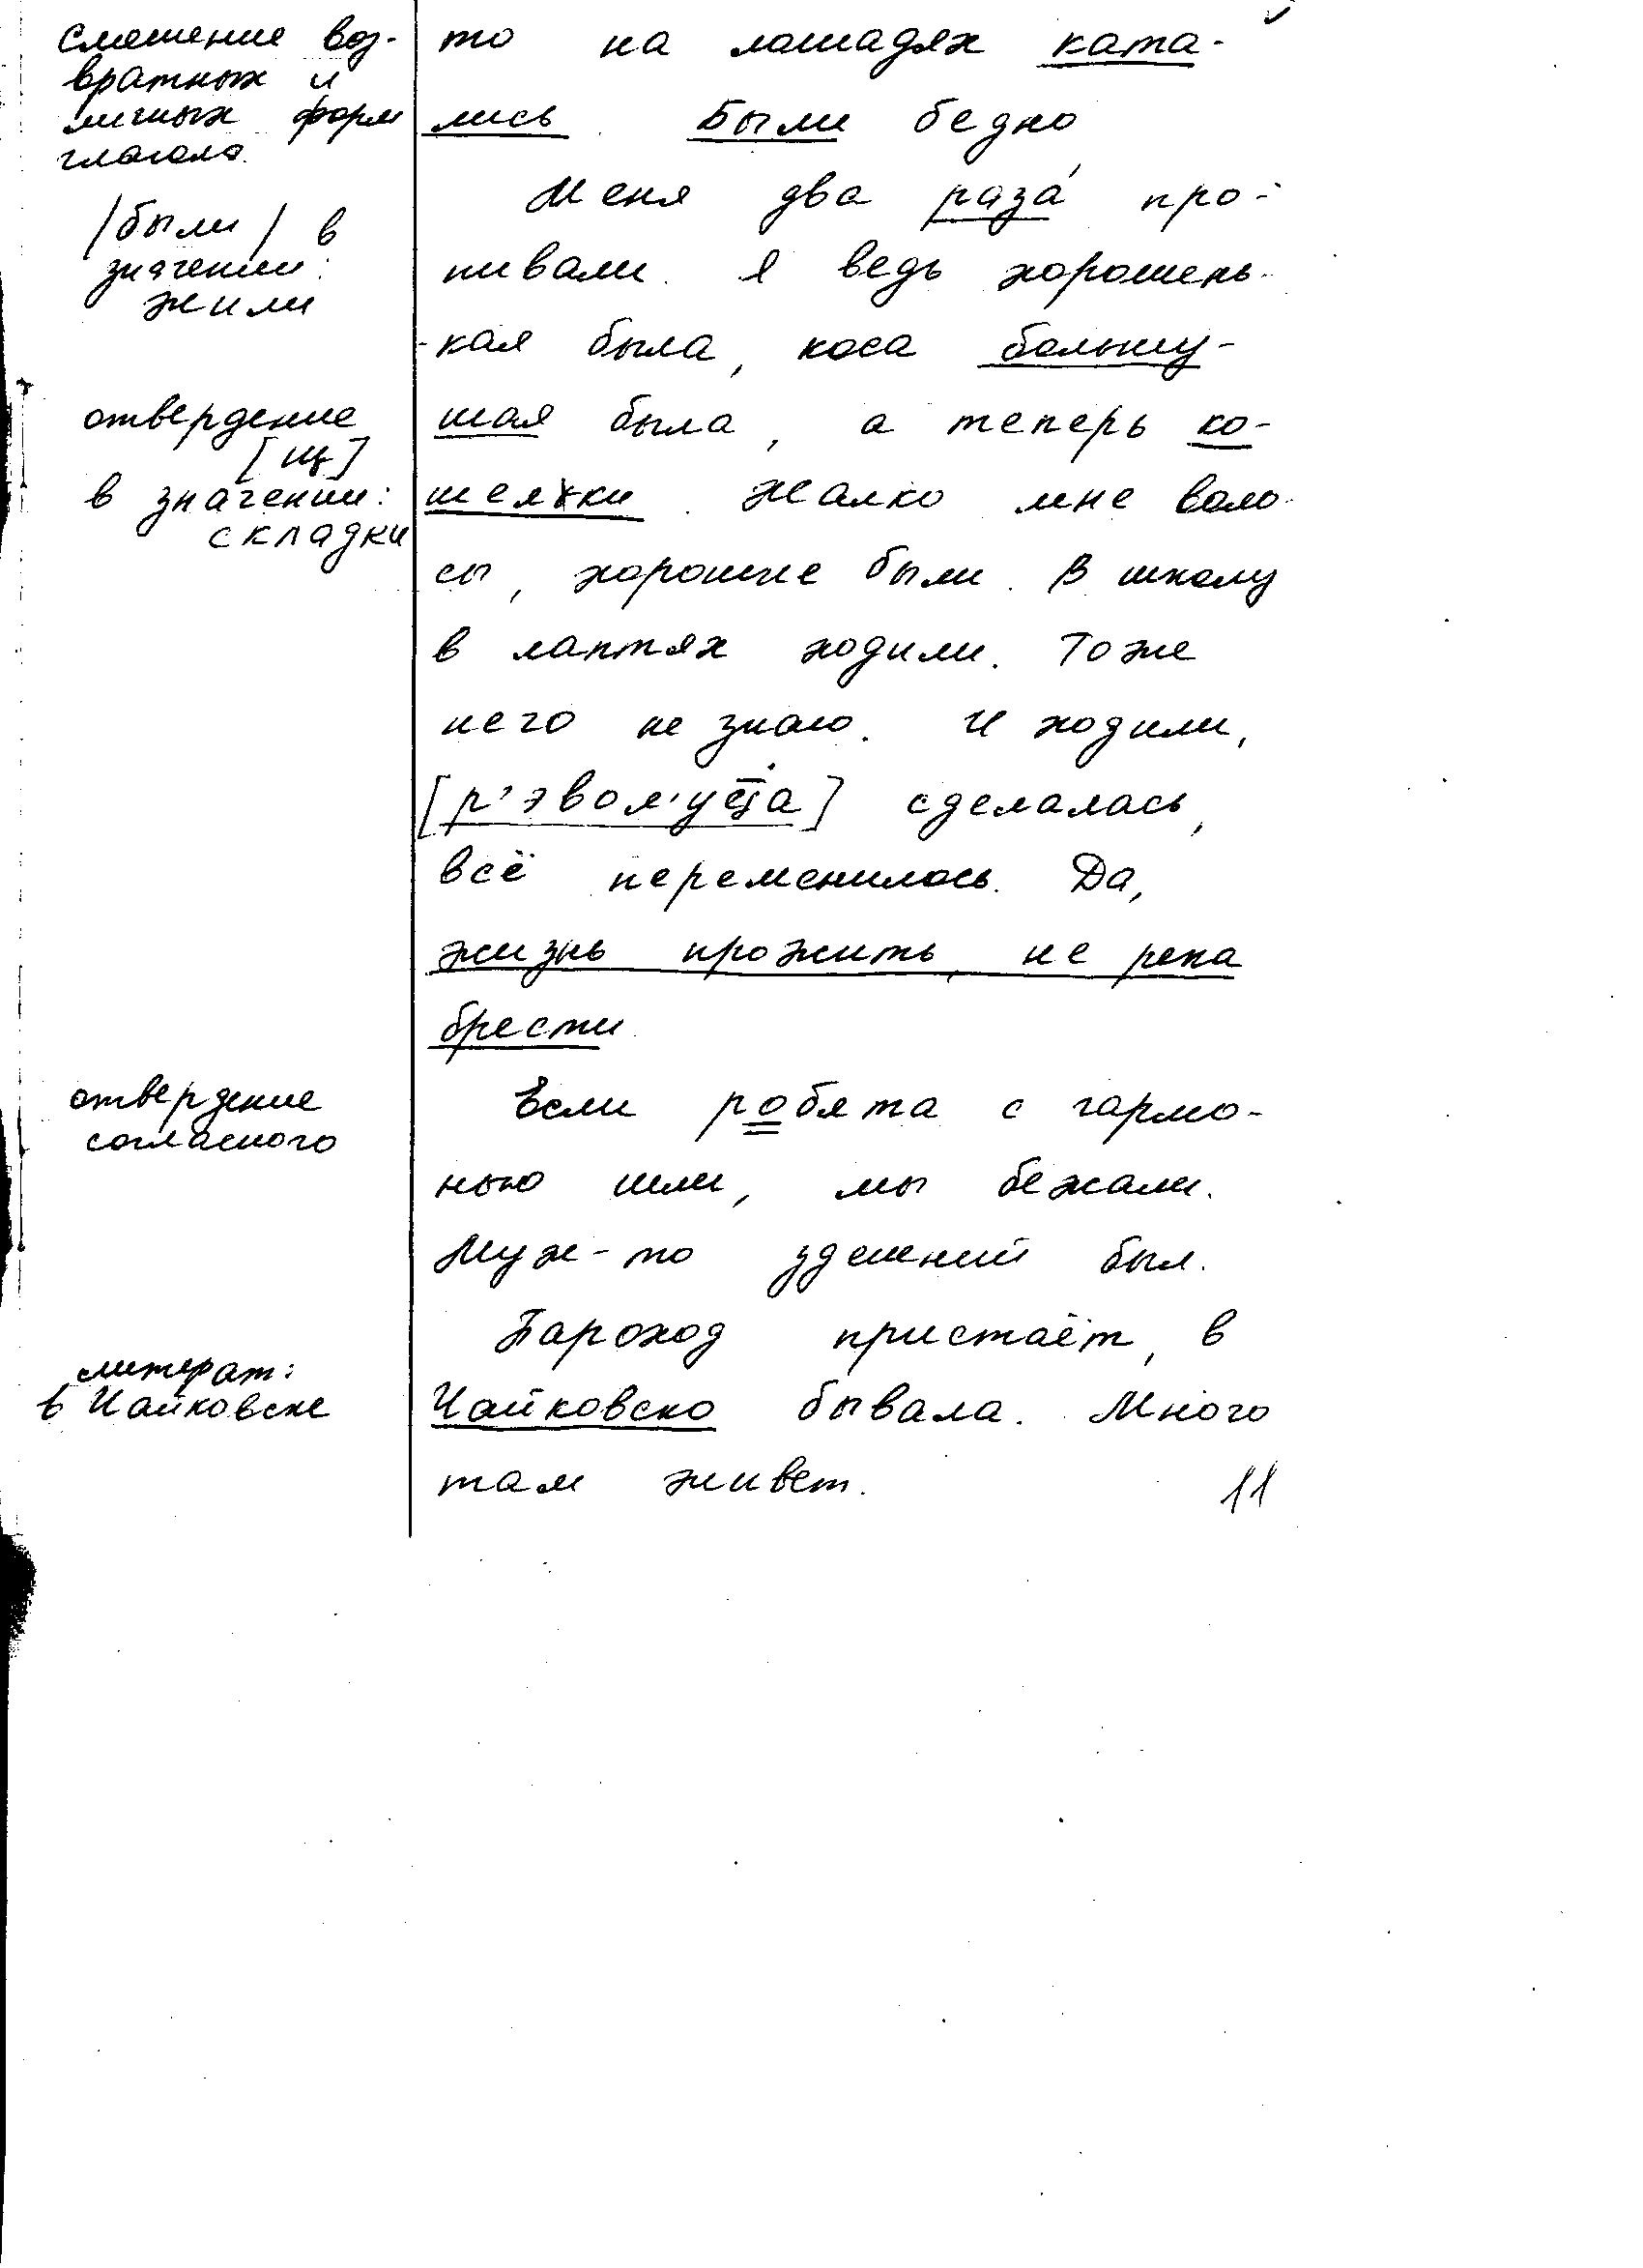 смешение воз-
вратных и
личных форм
глагола.
/были/ в
значении:
жили
отвердение
[щ]
в значении:
складки
отвердение
согласного
литерат:
в Чайковске
то на лошадях ката-
лись. Были бедно
Меня два раза́ про-
пивали. Я ведь хорошень-
-кая была, коса большу-
шая была, а теперь ко-
шелки. Жалко мне воло-
сы, хорошие были. В школу
в лаптях ходили. Тоже
чего не знаю. И ходили,
[р'эвол'уца] сделалась,
всё переменилось. Да,
жизнь прожить, не река
брести.
Если робята с гармо-
нью шли, мы бежали.
Муж-то здешний был.
Пароход пристаёт, в
Чайковско бывала. Много
там живет.
11